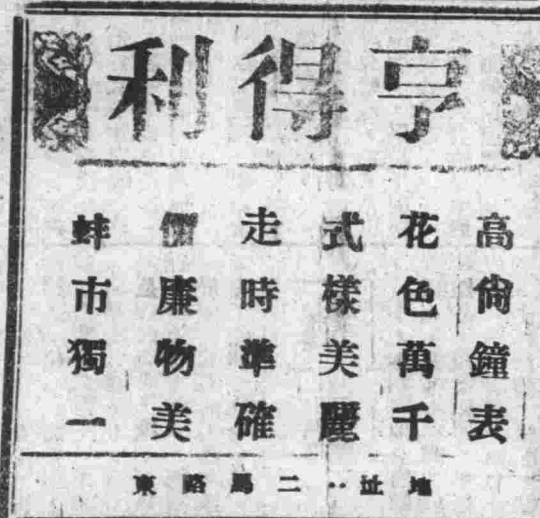 亨得利
高尙鐘表
花色萬千
式樣美麗
走時準確
價廉物美
蚌市獨一
地址：二馬路東